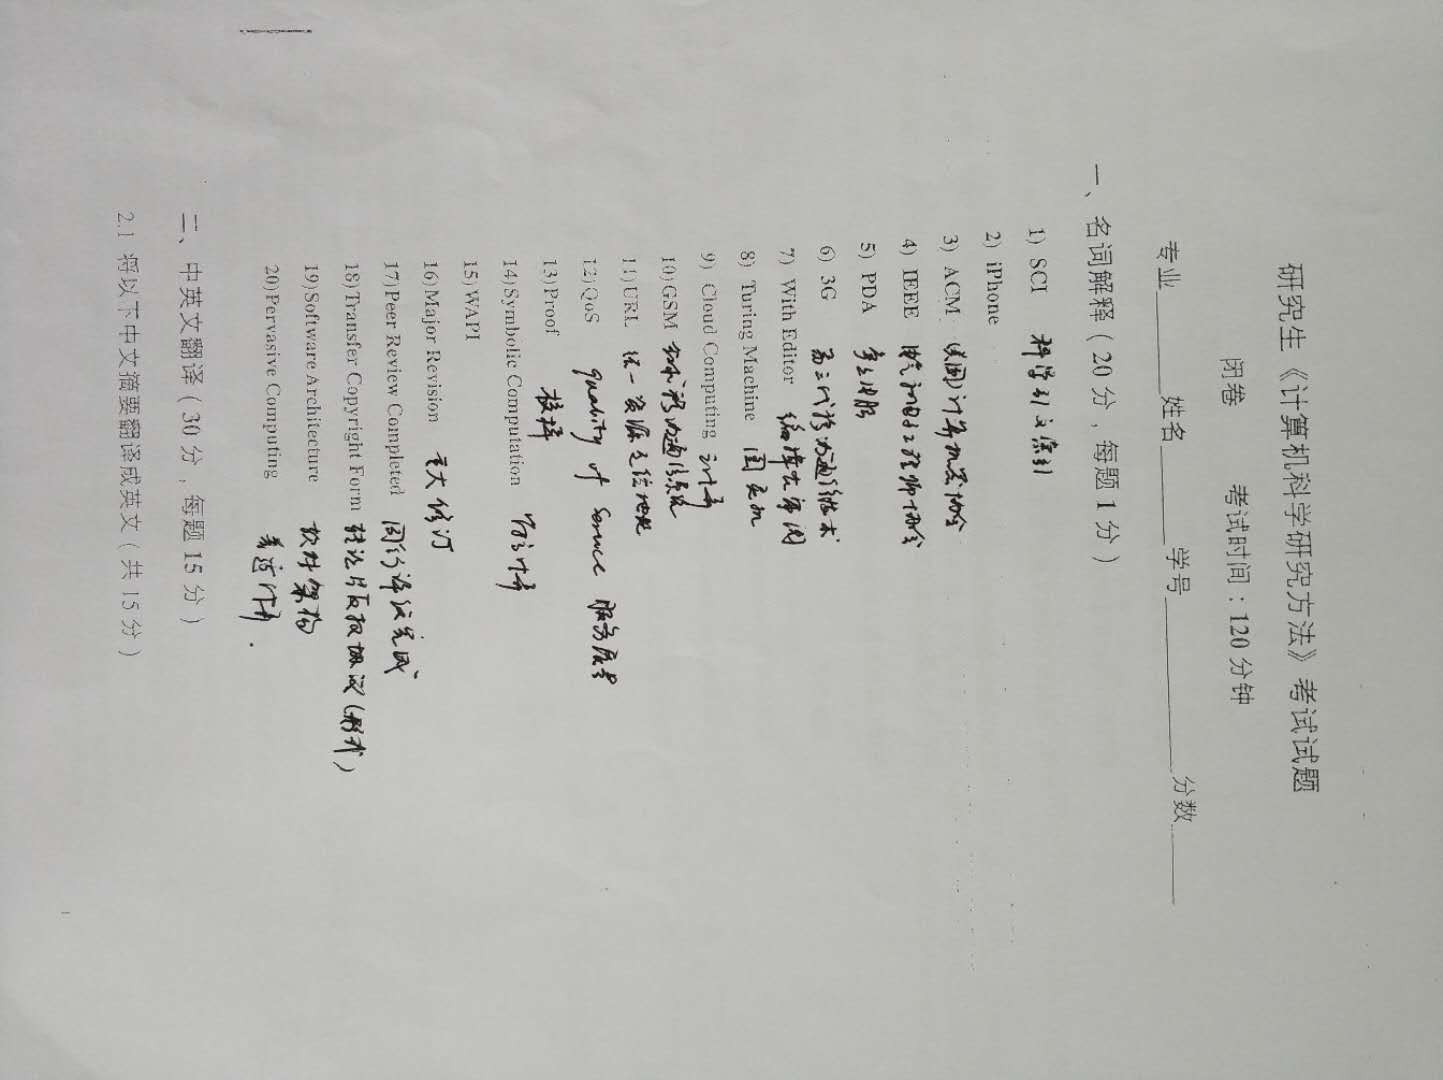 研究生《计算机科学研究方法》考试试题
闭卷 考试时间：120 分钟
专业________姓名________学号______________分数______
一、名词解释（20 分，每题 1 分）
1) SCI 科学引文索引
2) iPhone
3) ACM (美国)计算机器协会
4) IEEE 电气和电子工程师协会
5) PDA 掌上电脑
6) 3G 第三代移动通信技术
7) With Editor 编辑审阅
8) Turing Machine 图灵机
9) Cloud Computing 云计算
10)GSM 全球移动通信系统
11)URL 统一资源定位地址
12)QoS quality of Service 服务质量
13)Proof 校样
14)Symbolic Computation 符号计算
15)WAPI
16)Major Revision 重大修订
17)Peer Review Completed 同行评议完成
18)Transfer Copyright Form 转让版权协议(形式)
19)Software Architecture 软件架构
20)Pervasive Computing 普适计算.
二、中英文翻译（30 分，每题 15 分）
2.1 将以下中文摘要翻译成英文（共 15 分）
1